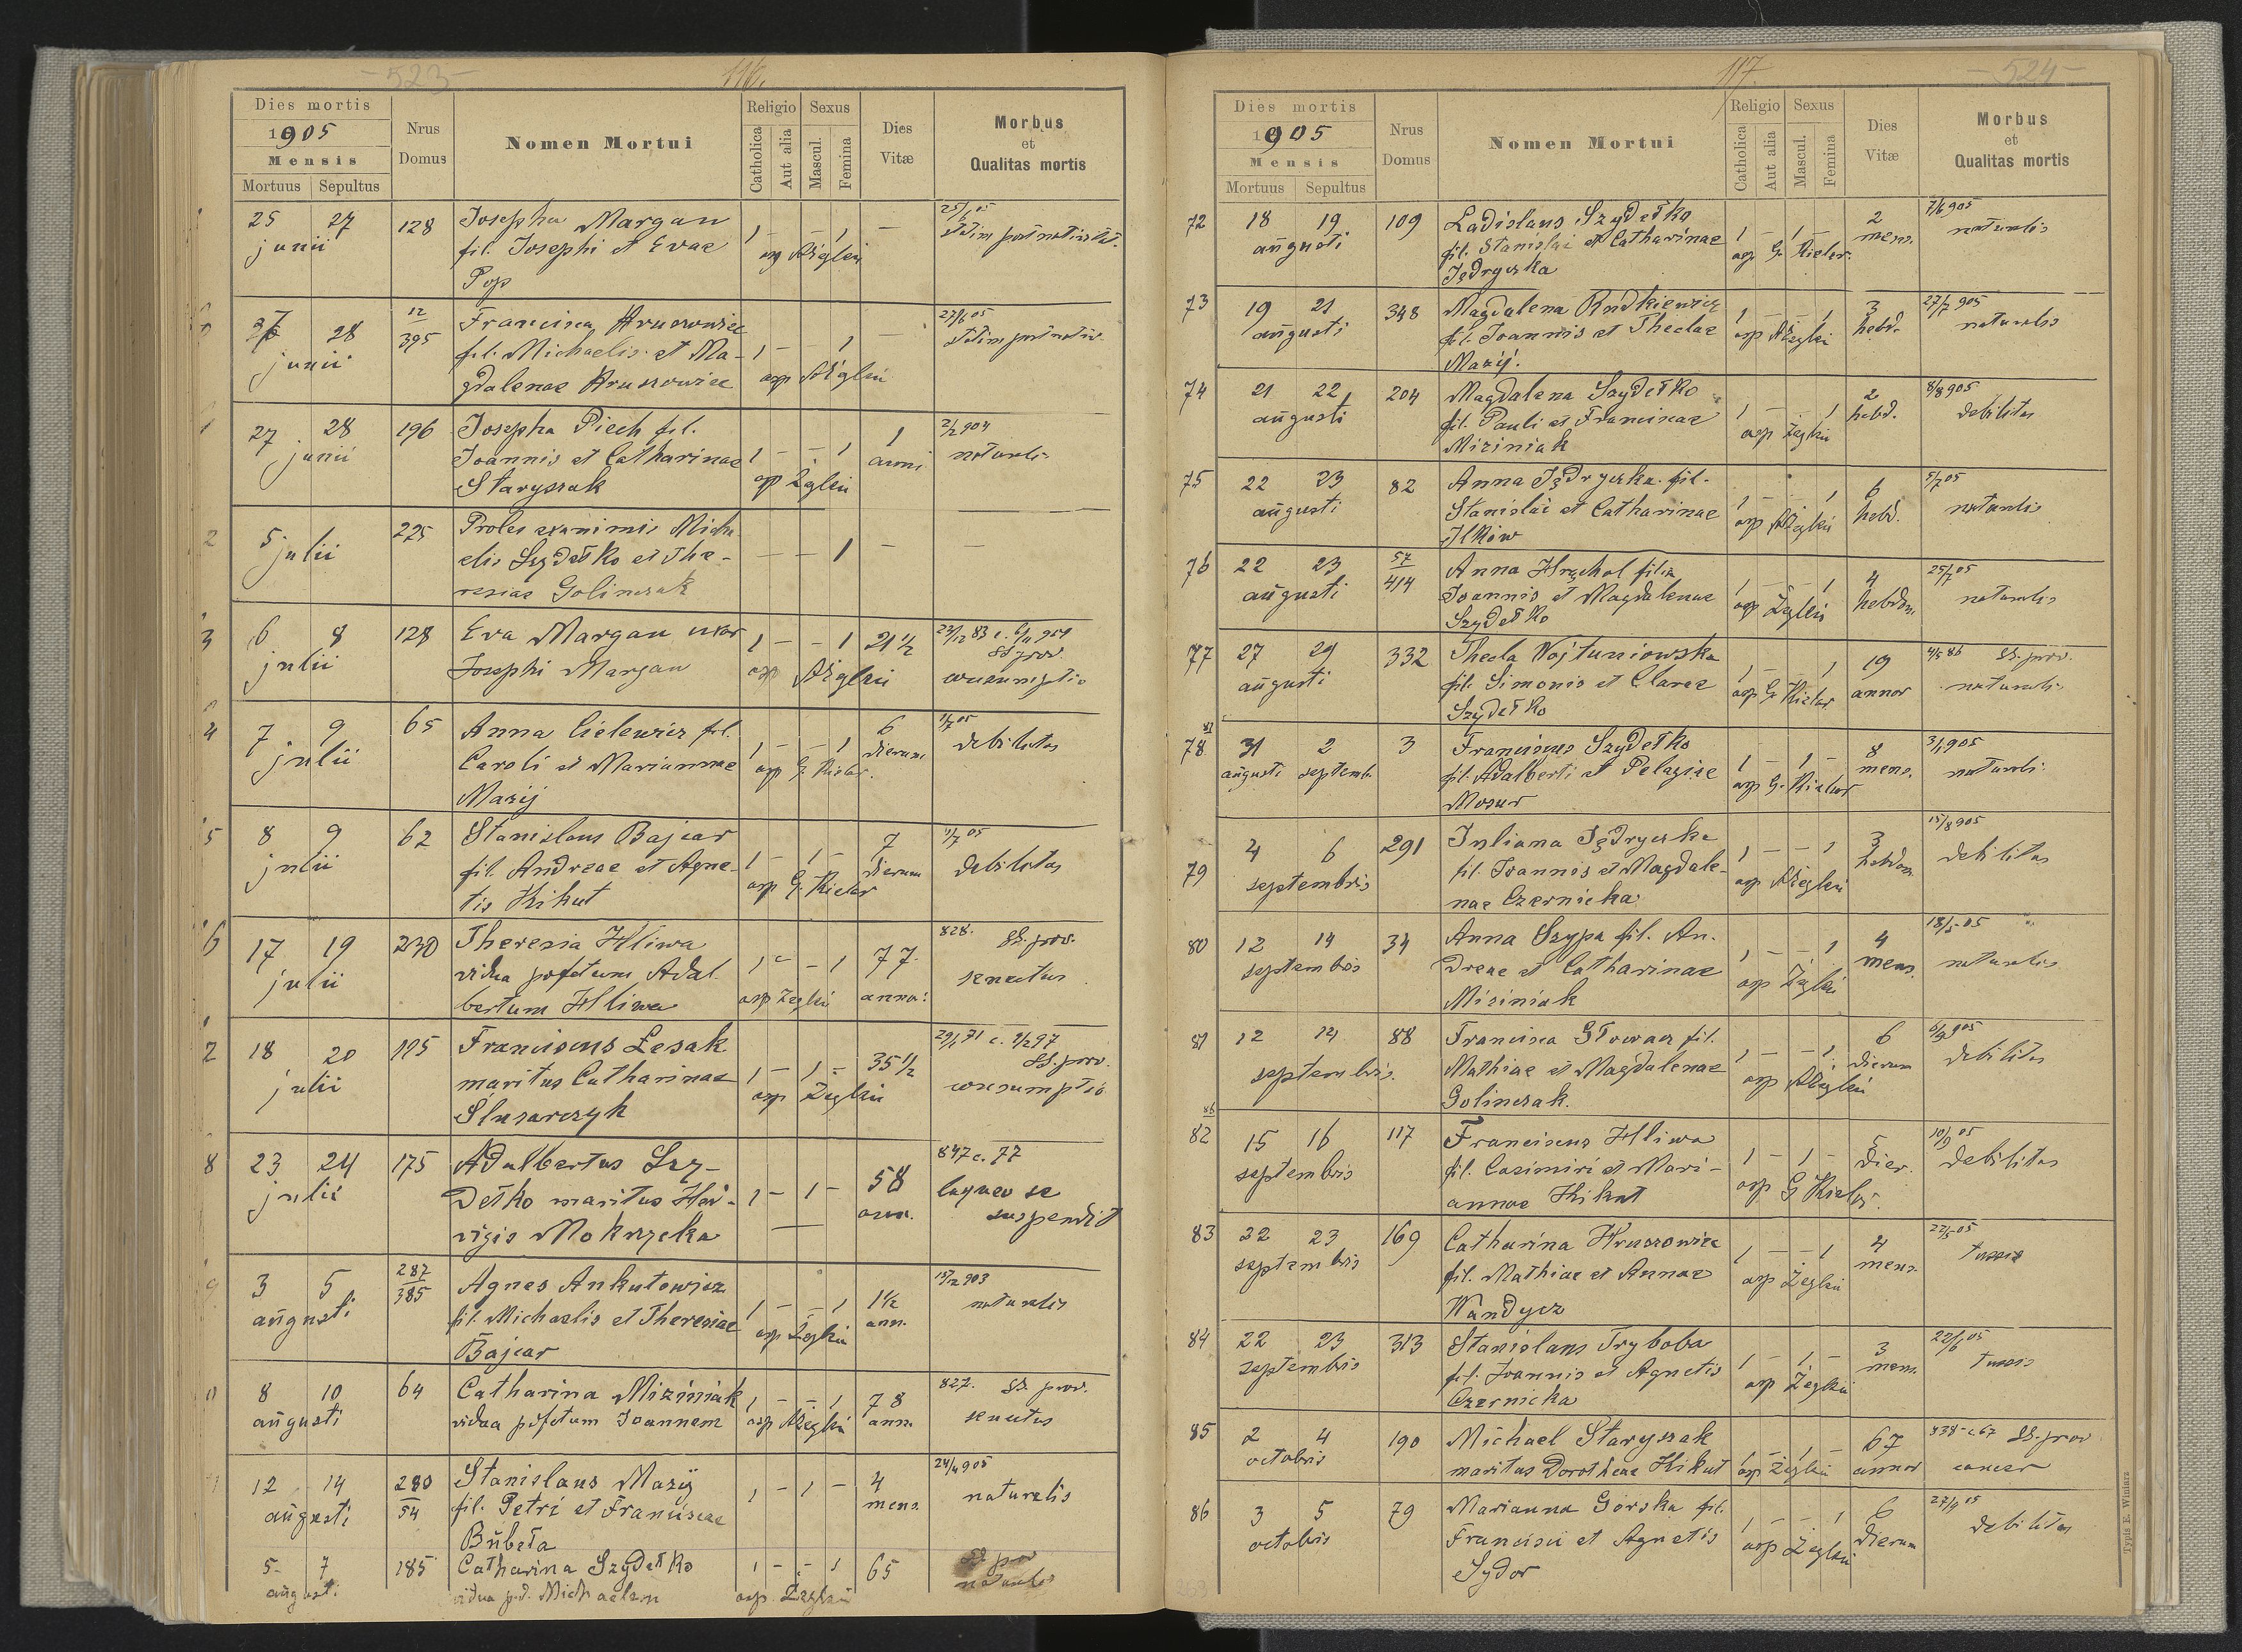 - 523 -
116.
Dies mortis
1905
Mensis
Mortuus Sepultus
Nrus Domus
Nomen Mortui
Religio
Catholica
Aut alia
Sexus
Mascul.
Femina
Dies Vitæ
Morbus et Qualitas mortis
25 27 128 Josepha Margan 1 - - 1 -
junii fil. Josephi et Evae
Pop
12
28 395 Francisca Hruszowiec
junii fil. Michaelis et Ma- 1 - 1 -
gdalenae Hruszowiec
27 28 196 Josepha Piech fil. 1 2/2 904
junii Joannis et Catharinae 1 - - 1 anni naturalis
Staryszak
2 5 225 Proles exanimis Micha
julii elis Szydełko et The- - - 1 -
resiae Golinczak
3 6 8 128 Eva Margan uxor 1 - - 1 21 1/2
julii Josephi Margan consumptio
4 7 9 65 Anna Cielewicz fil. 6 1/7 05
julii Caroli et Mariannae 1 - - 1 dierum debilitas
Mazij
5 8 9 62 Stanislaus Bajcar 7 1/7 05
julii fil. Andreae et Agne- 1 - 1 - dierum debilitas
tis Kikut
6 17 19 230 Theresia Hliwa 828. SS. prov.
julii vidua post Adal 1 - - 1 77 senectus
bertum Hliwa
18 20 195 Franciscus Lesak 35 1/2 SS. prov.
julii maritus Catharinae 1 - 1 - consumptio
Ślusarczyk
8 23 24 175 Adalbertus Szy- 847 c. 77
julii dełko maritus Hed- 1 - 1 - 58 laqueo se
vigis Mokrzycka ann. suspendit
287
3 5 385 Agnes Ankutowicz 15/12 903
augusti fil. Michaelis et Theresiae 1 - - 1 1 1/2 ann. naturalis
Bajcar
8 10 64 Catharina Miziniak 1 - - 1 78 827. SS. prov.
augusti vidua post Joannem ann. senectus
12 14 280 Stanislaus Mazij 4 24/4 905
augusti 54 fil. Petri et Franciscae 1 - 1 - mens. naturalis
Bubeła
5 7 185 Catharina Szydełko 1 - - 1 65
august. vidua p.d. Michaelem naturalis
117.
- 524 -
Dies mortis
1905
Mensis
Mortuus Sepultus
Nrus Domus
Nomen Mortui
Religio
Catholica
Aut alia
Sexus
Mascul.
Femina
Dies Vitæ
Morbus et Qualitas mortis
72 18 19 109 Ladislaus Szydełko 1 - 1 - 2 7/6 905
augusti fil. Stanislai et Catharinae mens. naturalis
Jędryczka
73 19 21 348 Magdalena Rudkiewicz 1 - - 1 3 27/7 905
augusti fil. Joannis et Theclae hebd. naturalis
Mazij.
74 21 22 204 Magdalena Szydełko 2 8/8 905
augusti fil. Pauli et Franciscae 1 - - 1 hebd. debilitas
Miziniak
75 22 23 82 Anna Jędryczka fil. 6
augusti Stanislai et Catharinae 1 - - 1 hebd. naturalis
Ilkow
57
76 22 23 414 Anna Hrychol filia 4 25/7 05
augusti Joannis et Magdalenae 1 - - 1 hebdom. naturalis
Szydełko
77 27 29 332 Thecla Wojtuniowska 19 4/5 86 SS. prov.
augusti fil. Simonis et Clarae 1 - - 1 annor naturalis
Szydełko
78 31 2 3 Franciscus Szydełko 8 3/1 905
augusti septemb. fil. Adalberti et Pelagiae 1 - 1 - mens. naturalis
Mosur
79 4 6 291 Juliana Jędryczka 3 15/8 905
septembris fil. Joannis et Magdale- 1 - - 1 hebdom. debilitas
nae Czernicka
80 12 14 34 Anna Szypa fil. An- 4 18/5 05
septembris dreae et Catharinae 1 - - 1 mens. naturalis
Miziniak
81 12 14 88 Francisca Głowacz fil. 6 6/9 905
septembris. Mathiae et Magdalenae 1 - - 1 dierum debilitas
Golinczak.
82 15 16 117 Franciscus Hliwa 5 10/9 05
septembris fil. Casimiri et Mari- 1 - 1 - dier. debilitas
annae Kikut
83 22 23 169 Catharina Hruszowiec 4 22/5 05
septembris fil. Mathiae et Annae 1 - - 1 mens. tussis
Wandycz
84 22 23 313 Stanislaus Tryboba 3 22/6 05
septembris fil. Joannis et Agnetis 1 - 1 - mens. tussis
Czernicka
85 2 4 190 Michael Staryszak 67 838 c. 67 SS. prov
octobris maritus Dorotheae Kikut 1 - 1 - annor cancer
86 3 5 79 Marianna Górska fil. 6 27/9 05
octobris Francisci et Agnetis 1 - - 1 dierum debilitas
Sydor
Typis E. Winiarz